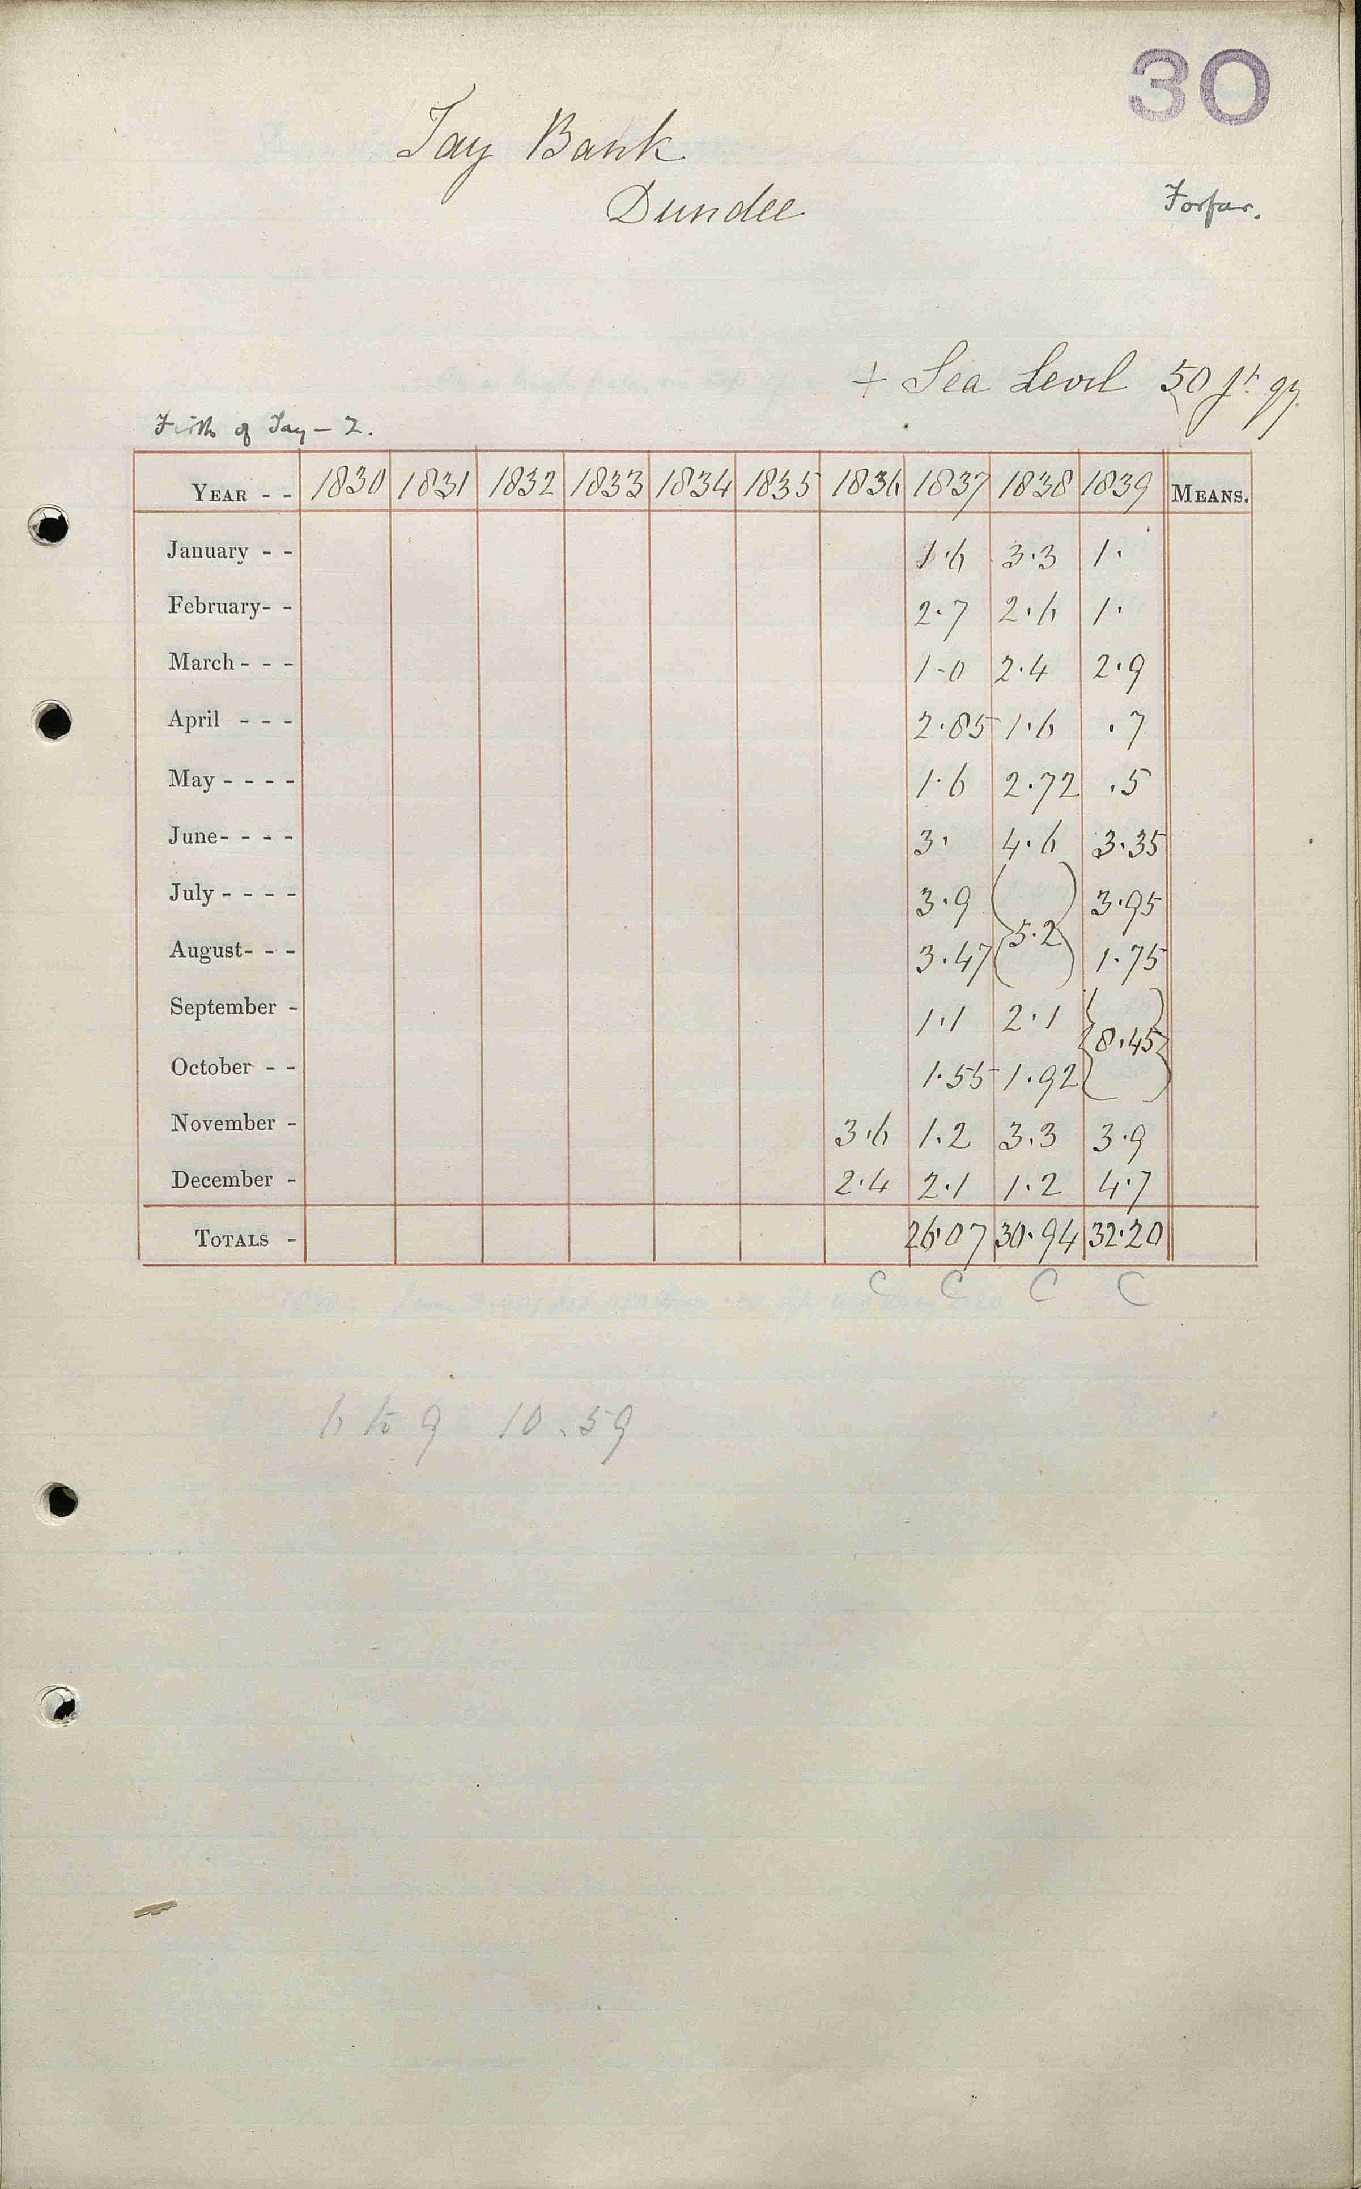 30
Tay Bank
Dundee
Forfar.
+ Sea Level 50 ft
Firth of Tay - 2.
YEAR - - 1830 1831 1832 1833 1834 1835 1836 1837 1838 1839 MEANS.
January - - 1.6 3.3 1.
February- - 2.7 2.6 1.
March - - - 1-0 2.4 2.9
April - - - 2.85 1.6 .7
May - - - - 1.6 2.72 .5
June- - - - 3. 4.6 3.35
July - - - - 3.9 3.95
5.2
August- - - 3.47 1.75
September - 1.1 2.1
8.45
October - - 1.55 1.92
November - 3.6 1.2 3.3 3.9
December - 2.4 2.1 1.2 4.7
TOTALS - 26.07 30.94 32.20
C C C C
6 to 9 10.59